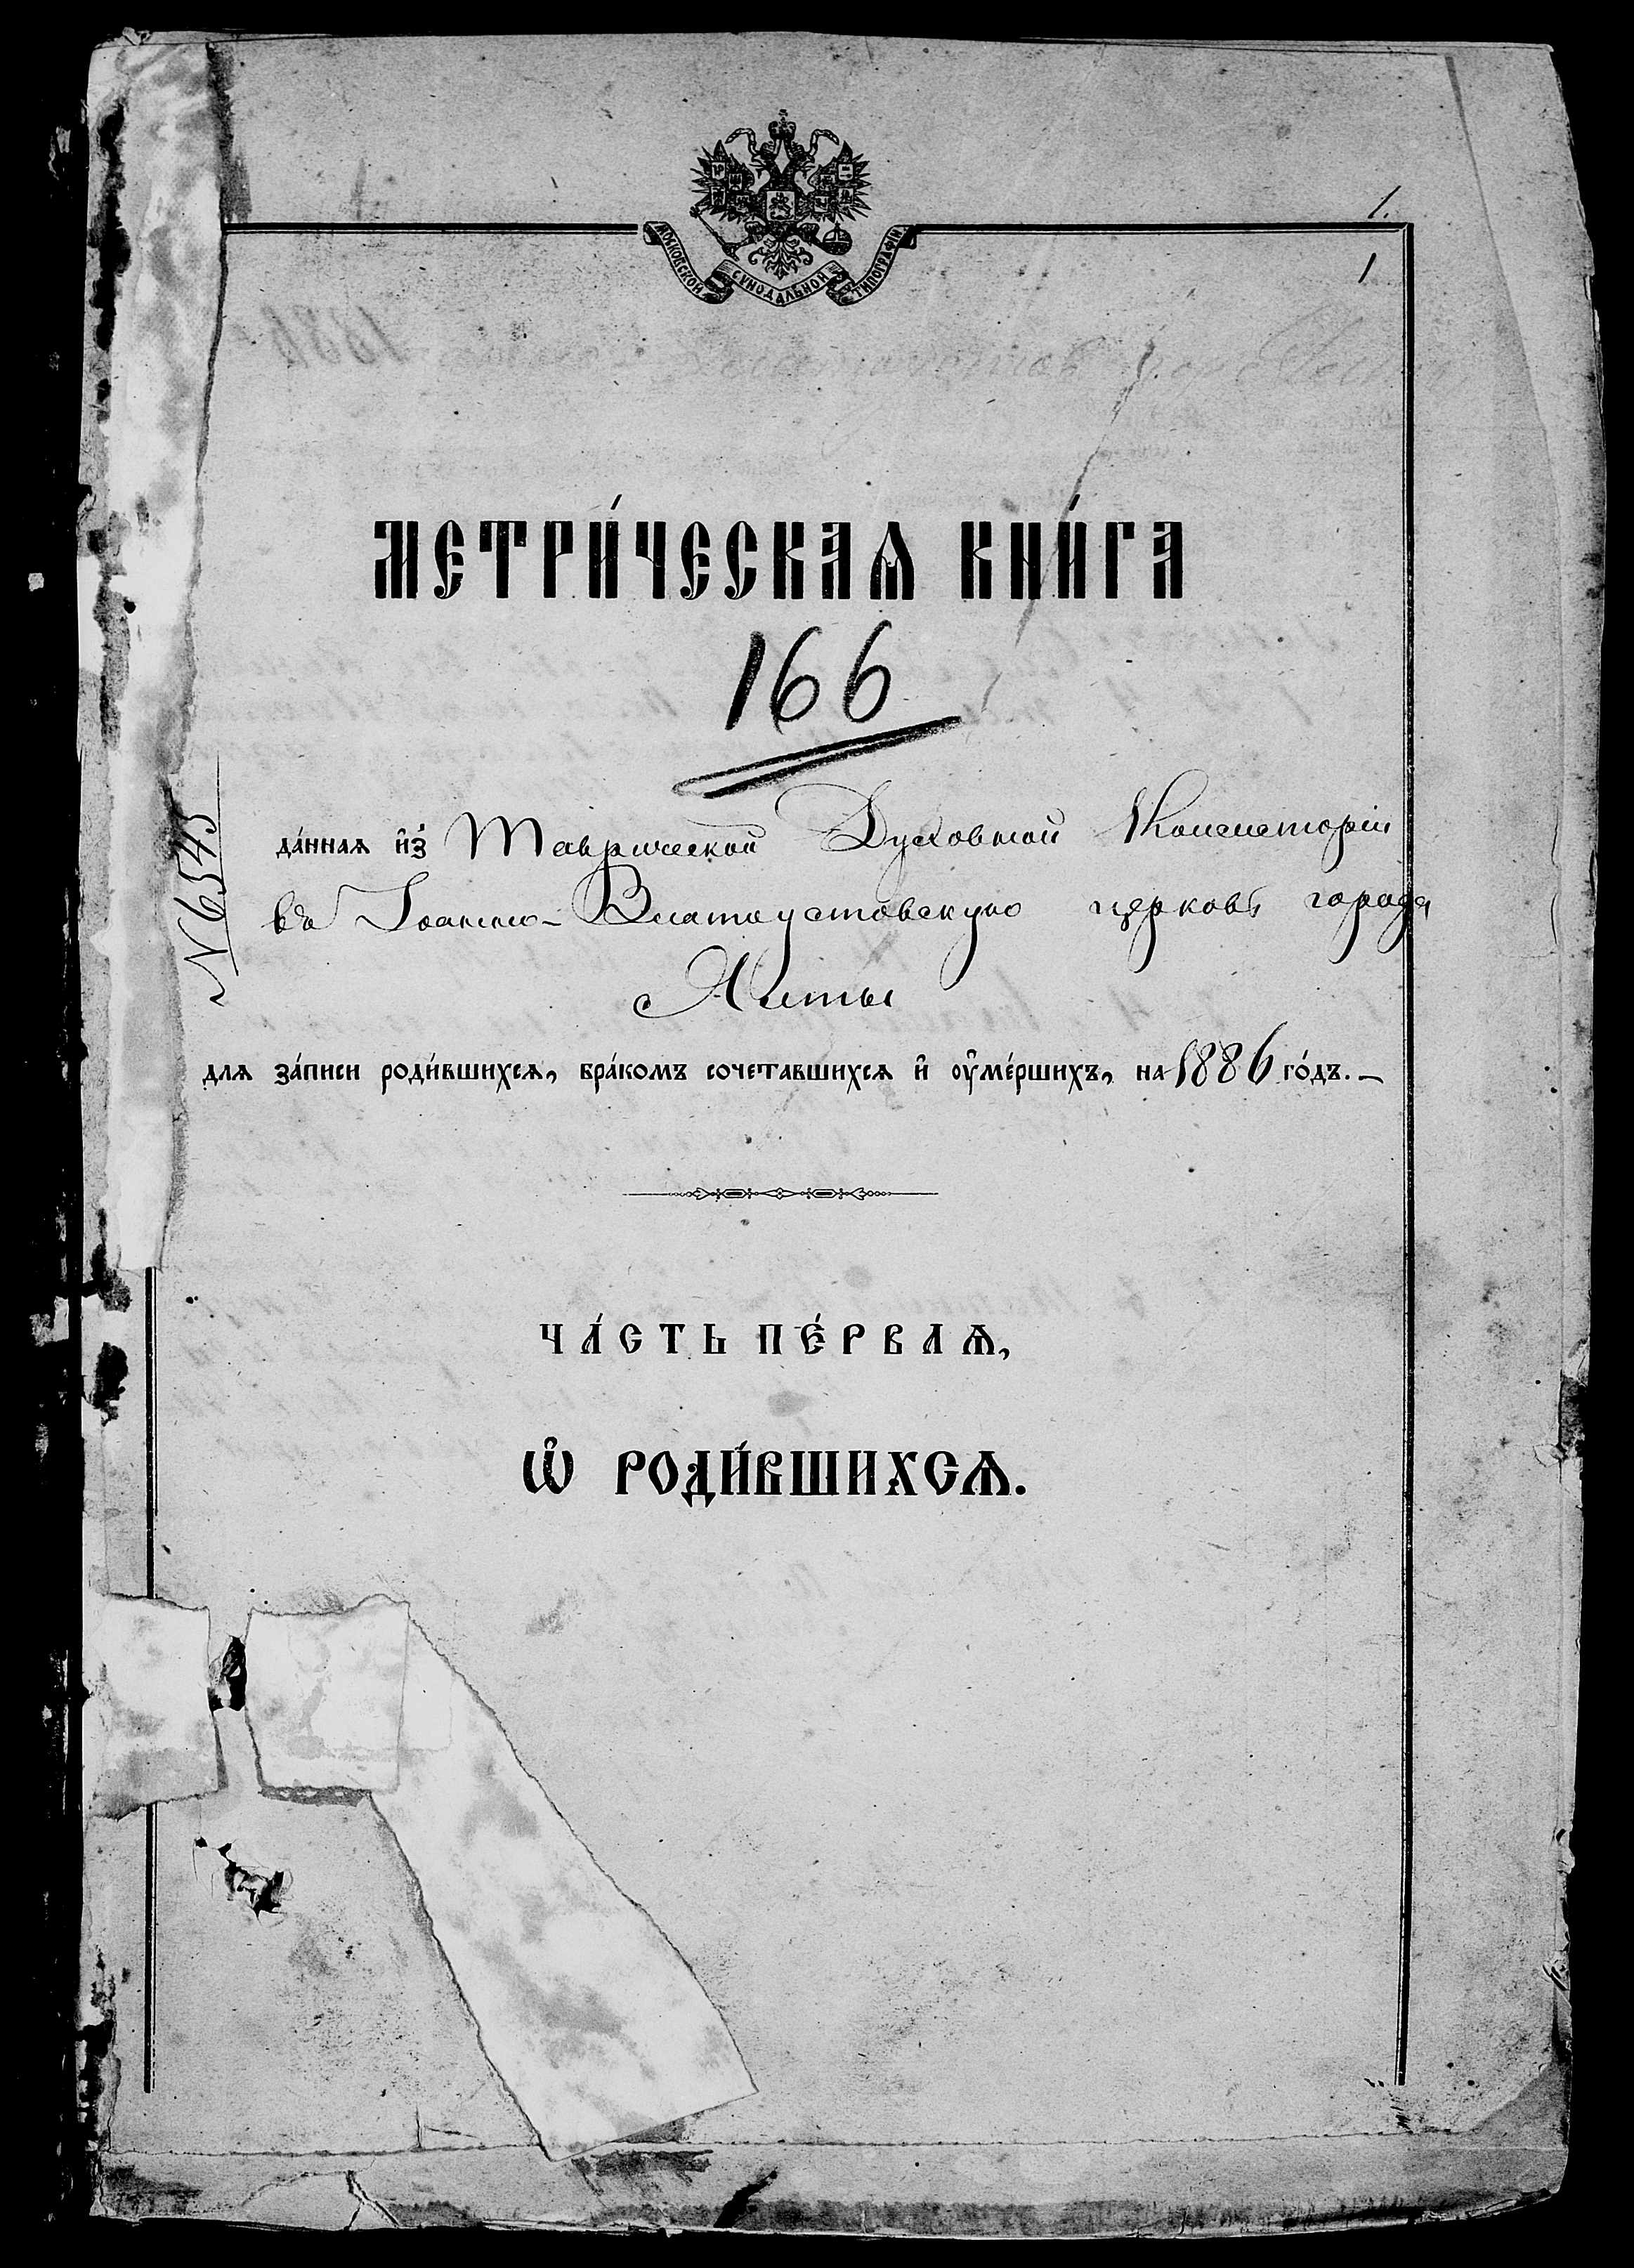 1.
МОСКОВСКОЙ СѴНОДАЛЬНОЙ ТИПОГРАФІИ
1
МЕТРИ́ЧЕСКАѦ КНИ́ГА
166
№ 6545
да́ннаѧ и҆з̾ Таврической Духовной Консисторіи
въ Іоанно-Златоустовскую церковь города
Ялты
длѧ за́писи роди́вшихсѧ, бра́комъ сочетавшихсѧ и҆ ᲂу҆ме́ршихъ, на 1886 го́дъ. –
ЧА́СТЬ ПЕ́РВАѦ,
Ѽ РОДИ́ВШИХСѦ.